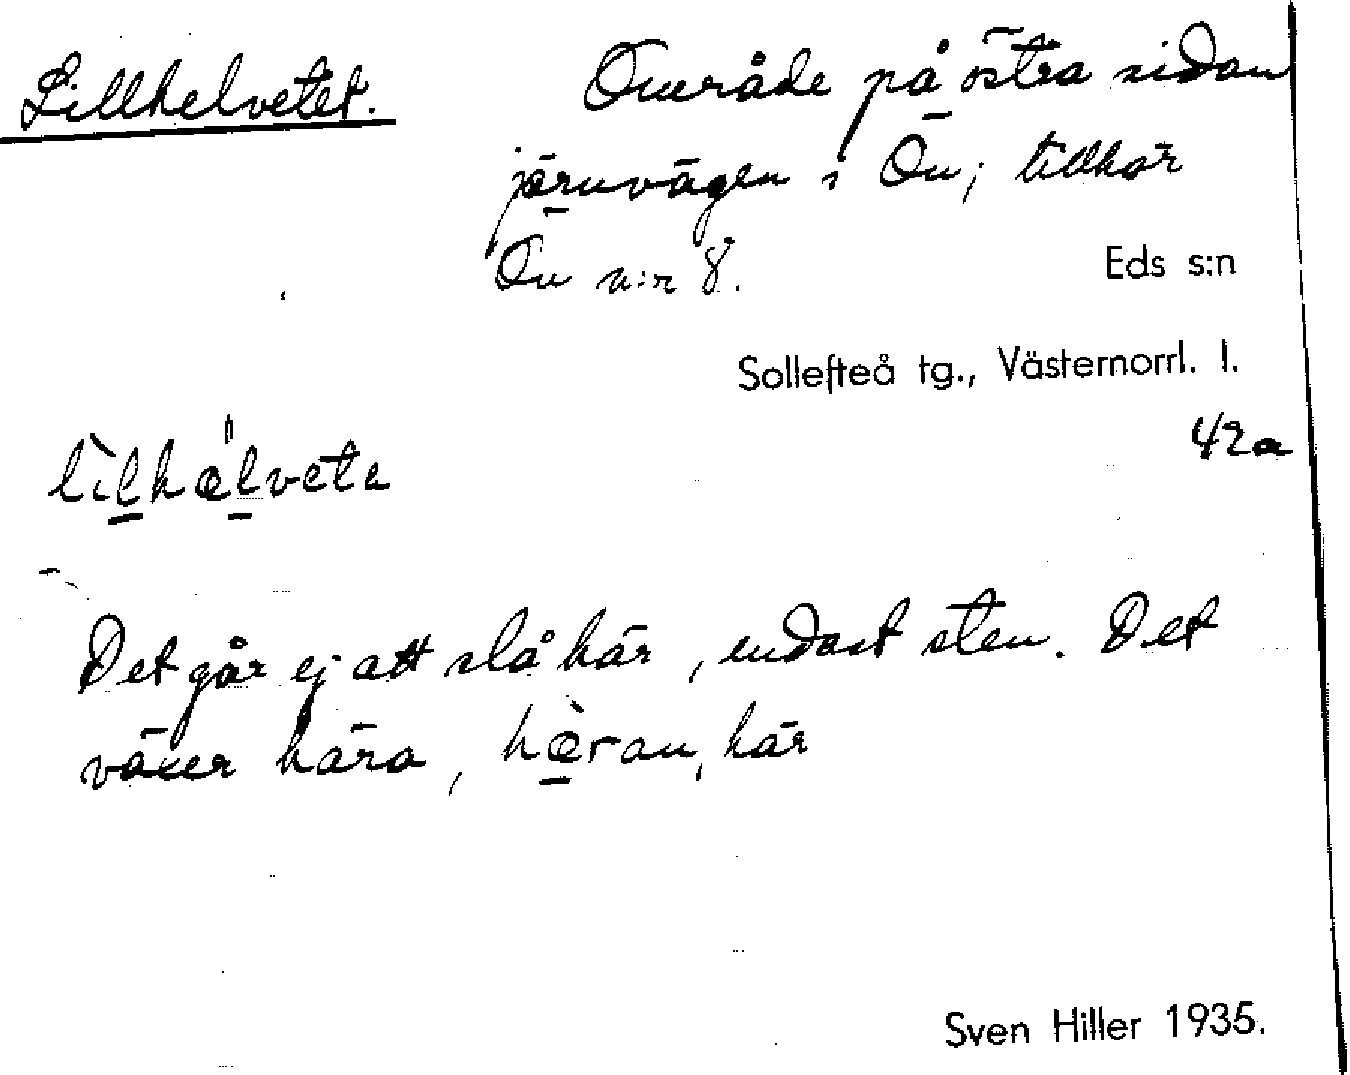 Lillhelvetet.
Område på östra sidan
järnvägen i Ön; tillhör
Ön n:r 8.
Eds s:n
Sollefteå tg., Västernorrl. l.
42a
lìlhæ̀lvetə
Det går ej att slå här, endast sten. Det
växer hära, hæ̀ran, här
Sven Hiller 1935.